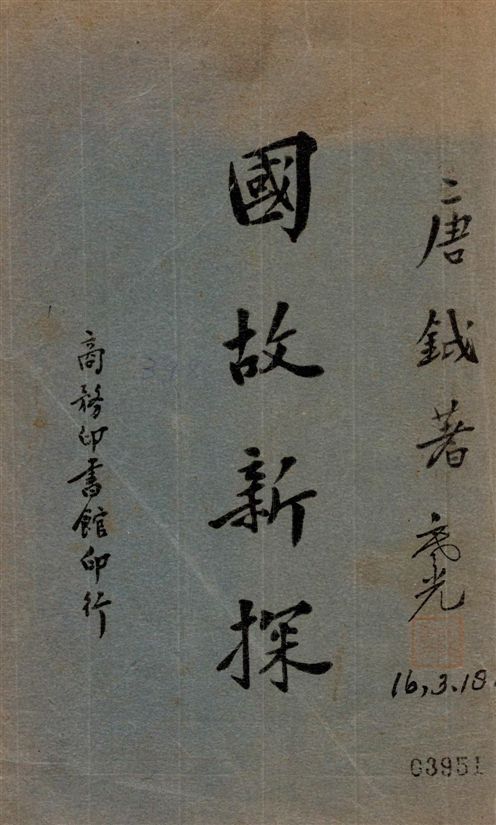 唐鉞著
國故新探
商務印書館印行
16,3.18.
03951